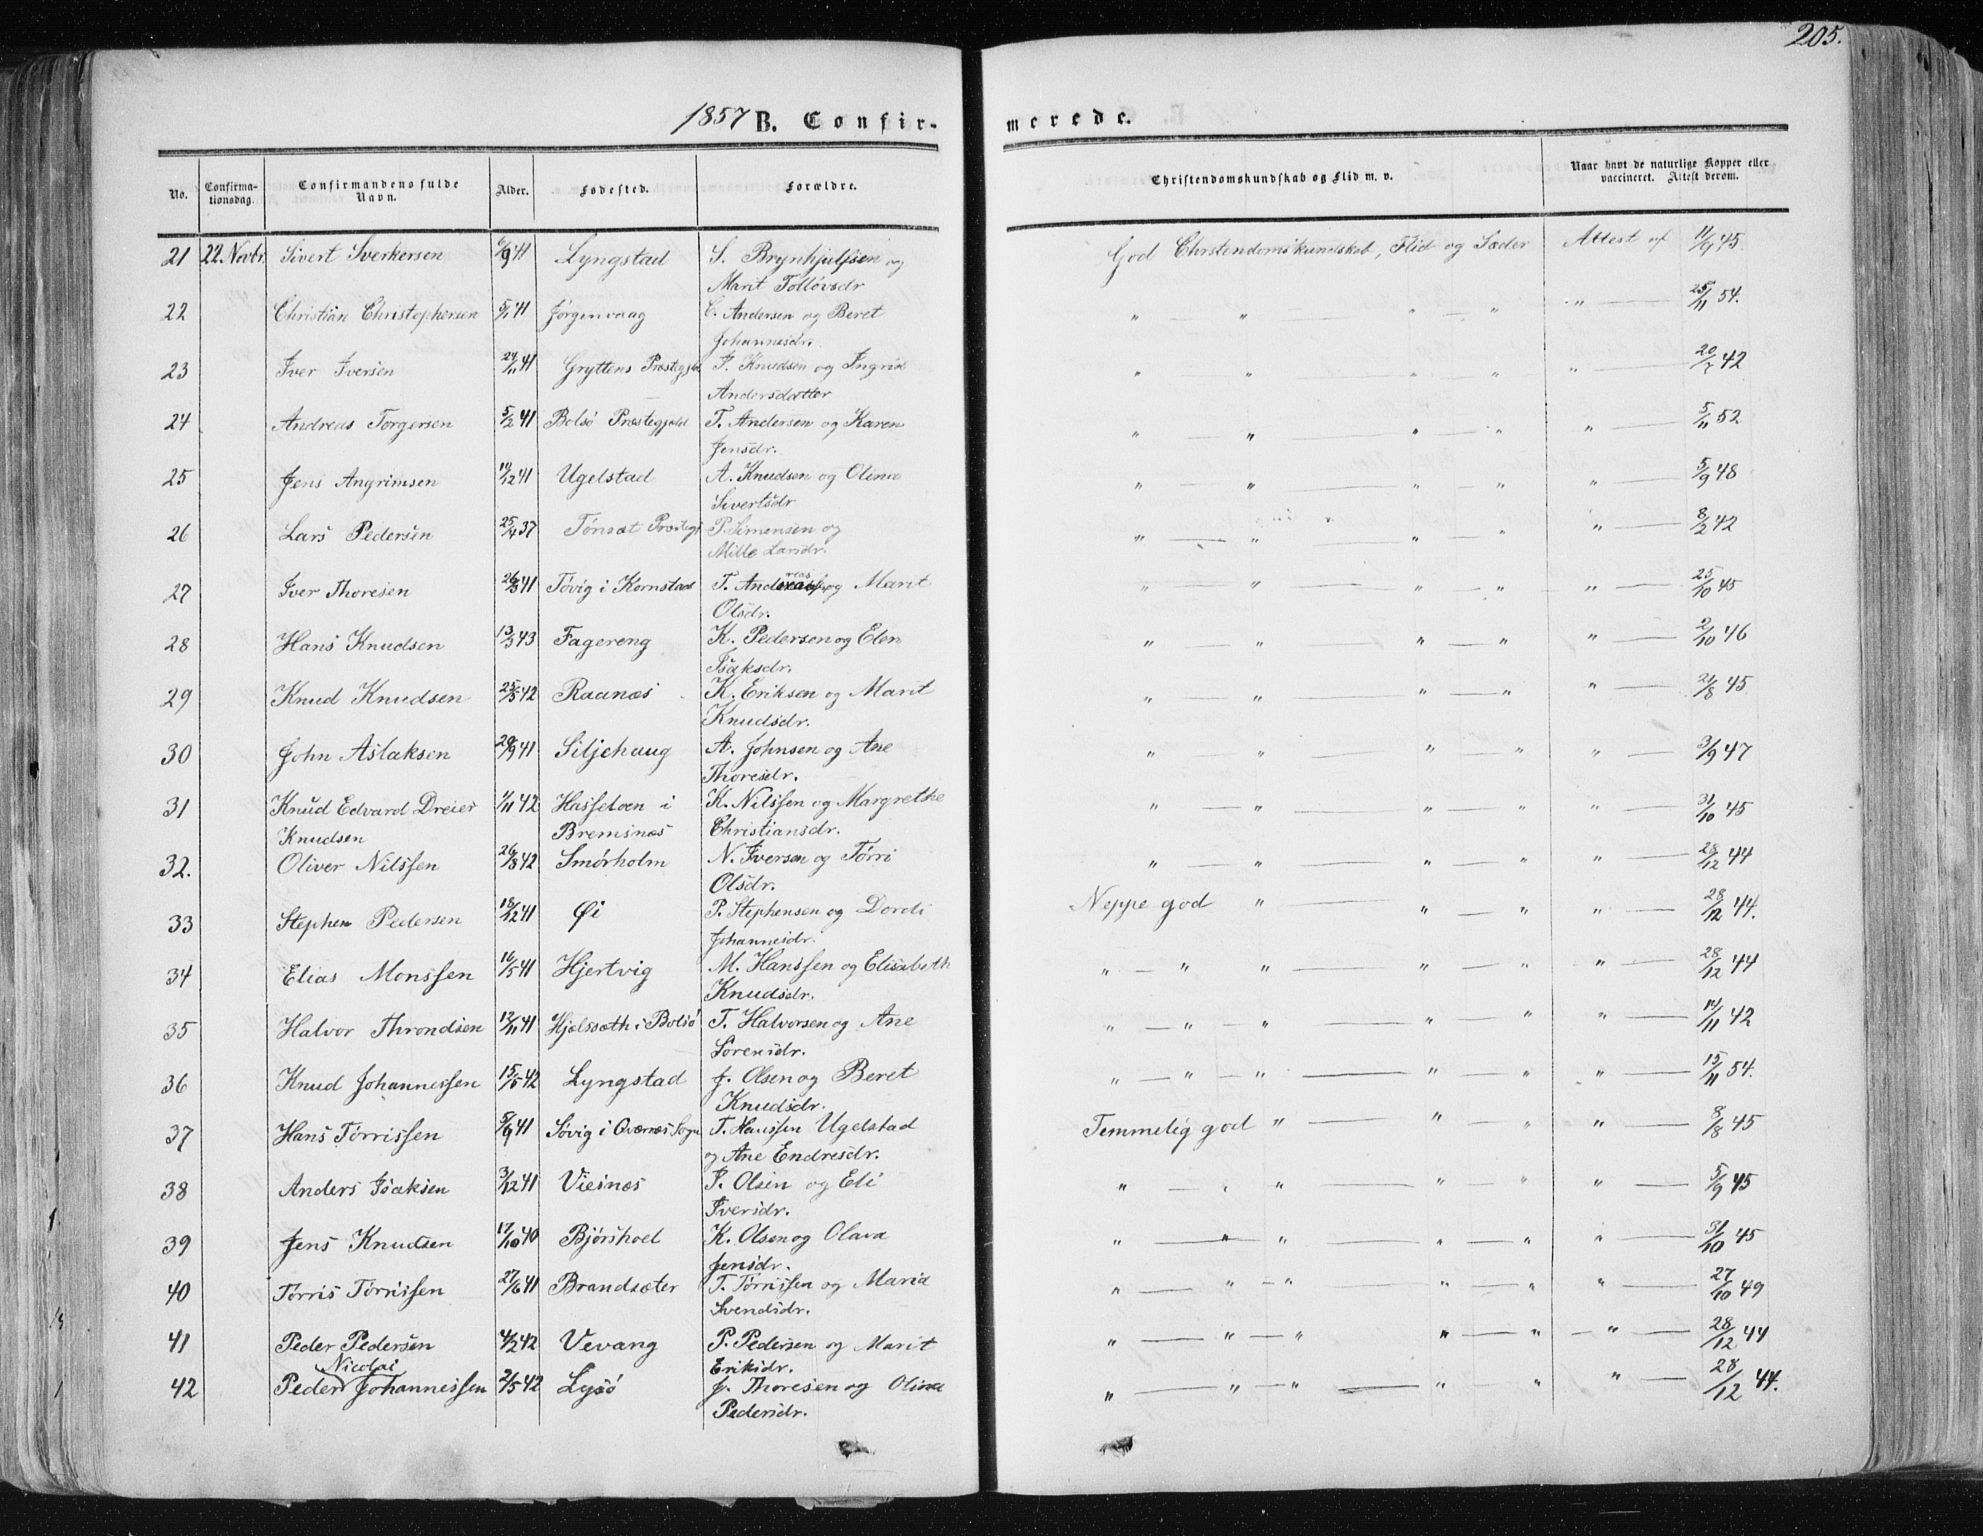 205.
1857 B. Confirmerede.
No. Confirmationsdag. Confirmandens fulde Navn. Alder. Fødested. Forældre. Christendomskundskab og Flid m. v. Naar havt de naturlige Kopper eller vaccineret. Attest derom.
21 22. Novbr. Sivert Sverkersen 6/9 41 Lyngstad S. Brynhjulfsen og God Christendomskundskab, Flid og Sæder Attest af 11/9 45.
Marit Tolløvsdr
22 Christian Christophersen 5/1 41 Jörgenvaag C. Andersen og Beret " " " — " " — 25/11 54.
Johannesdr.
23 Iver Iversen 24/11 41 Gryttens Præstegjeld I. Knudsen og Ingrid " " " — " " — 20/7 42
Andersdatter
24 Andreas Torgersen 5/2 41 Bolsö Præstegjeld T. Andersen og Karen " " — " — " " — 5/11 52
Jensdr.
25 Jens Angrimsen 14/12 41 Ugelstad A. Knudsen og Olina " — " — " — " " — 5/9 48
Sivertsdr
26 Lars Pedersen 25/4 37 Tönsæt Præstegj P. Simensen og " — " — " " " — 8/2 42
Mille Larsdr.
27 Iver Thoresen 26/3 41 Tövig i Kornstad T. Andreas og Marit " " — " — " — " — 25/10 45
Olsdr.
28 Hans Knudsen 13/3 43 Fagereng K. Pedersen og Elen " — " — " — " " — 2/10 46
Isaksdr.
29 Knud Knudsen 25/3 42 Raanæs K. Eriksen og Marit " " — " — " " — 21/8 45
Knudsdr.
30 John Aslaksen 20/9 41 Siljehaug A. Johnsen og Ane " " — " " " — 3/9 47
Thoresdr.
31 Knud Edvard Dreier 1/11 42 Hasseløen i K. Nilssen og Margrethe " — " — " — " " — 31/10 45
Knudsen Bremsnæs Christiansdr.
32. Oliver Nilssen 26/3 42 Smörholm N. Iversen og Törri " " — " — " " — 28/12 44
Olsdr.
33 Stephen Pedersen 18/12 41 Øi P. Stephensen og Dordi Neppe god " — " — " " — 28/12 44.
Johannesdr.
34 Elias Monssen 16/5 41 Hjertvig M. Hanssen og Elisabeth " — " " — " — " " — 28/12 44
Knudsdr.
35 Halvor Throndsen 13/11 41 Hjelsæth i Bolsö T. Halvorsen og Ane " — " — " — " — " " — 14/11 42
Sörensdr.
36 Knud Johannessen 15/5 42 Lyngstad J. Olsen og Beret " — " — " — " — " " — 15/11 54.
Knudsdr.
37 Hans Törrissen 5/9 41 Sövig i Overnæs Sogn T. Hanssen Ugelstad Temmelig god " — " — " " — 8/8 45
og Ane Endresdr.
38 Anders Isaksen 3/12 41 Viesnæs I. Olsen og Eli " — " " — " — " " — 5/9 45
Iversdr.
39 Jens Knudsen 17/10 40 Bjørshoel K. Olsen og Olava " — " — " — " — " " — 31/10 45
Jensdr.
40 Törris Törrissen 27/6 41 Brandsæter T. Törrissen og Maria " — " — " — " — " " — 27/10 49
Svendsdr.
41 Peder Pedersen 4/2 42 Vevang P. Pedersen og Marit " — " — " " — " — " — 28/12 44
Eriksdr.
42 Peder Nicolai Johannessen 2/5 42 Lysö J. Thoresen og Olina " — " — " — " — " " — 28/12 44.
Pedersdr.